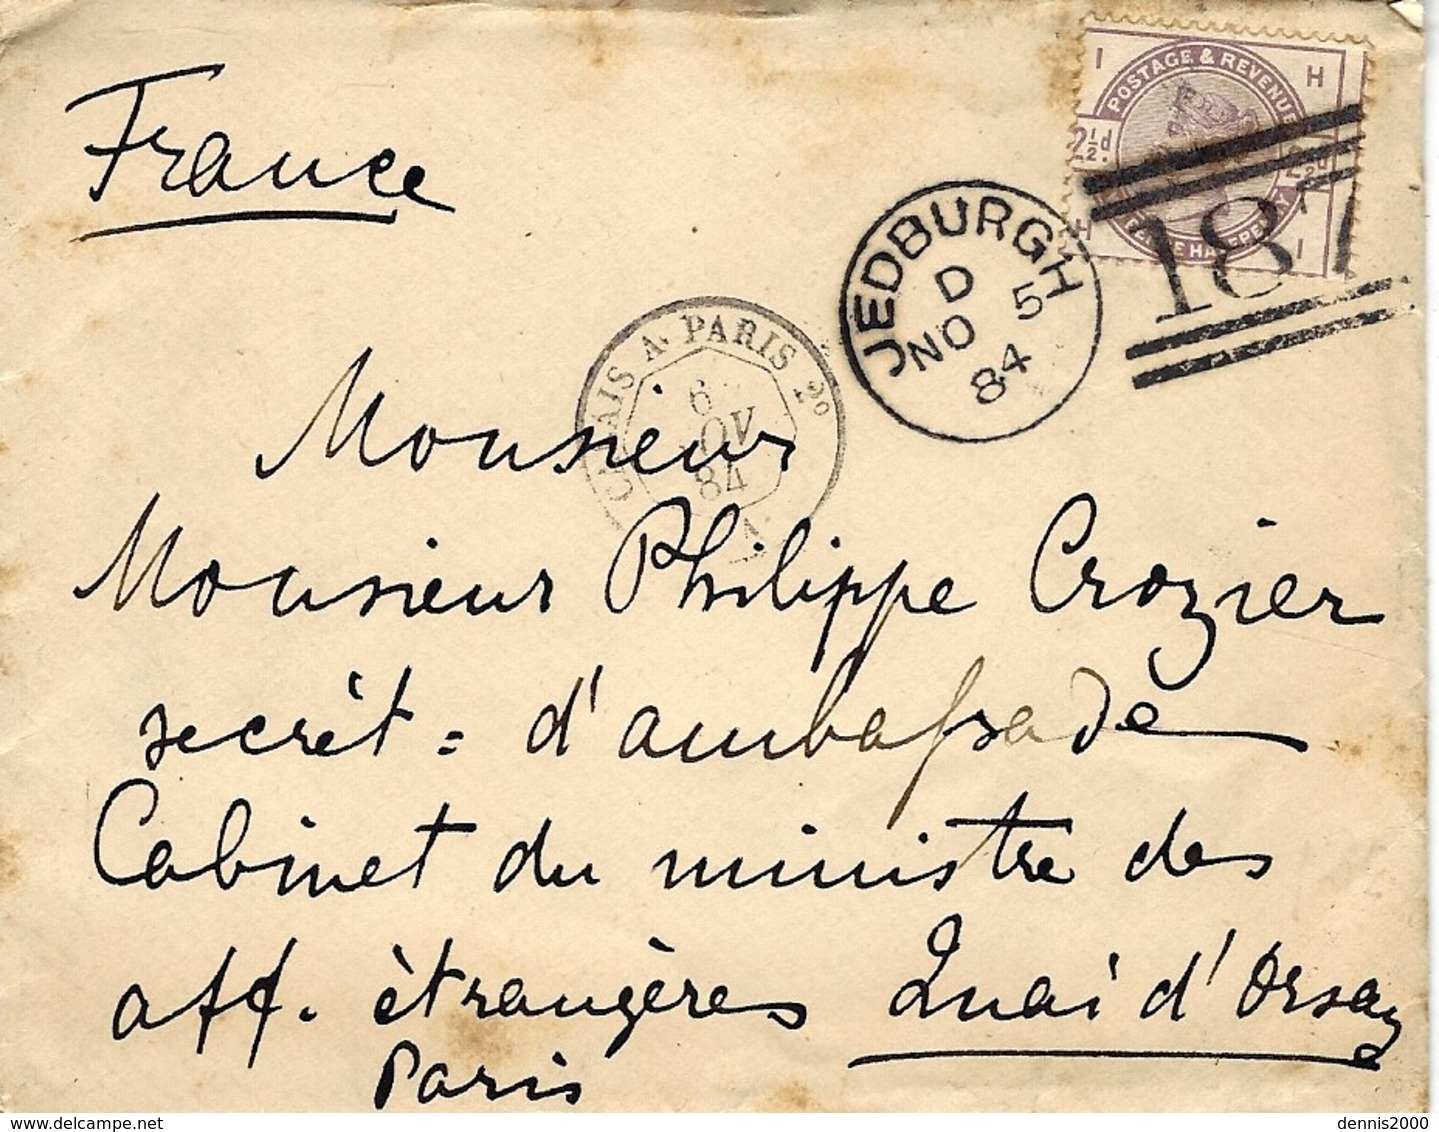 France
I H
POSTAGE & REVENUE
2½d. 2½d.
H I
187
JEDBURGH
D
NO 5
84
CALAIS A PARIS 2º
6
NOV
84
Monsieur
Monsieur Philippe Crozier
secrèt = d'ambassade
Cabinet du ministre des
aff. ètrangères Quai d'Orsay
Paris
dennis2000